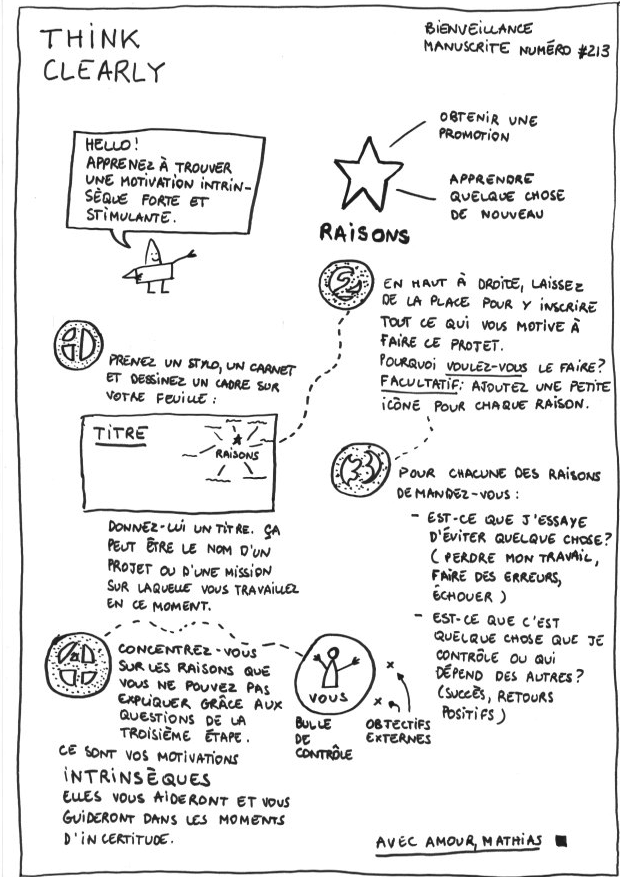 THINK
CLEARLY
BIENVEILLANCE
MANUSCRITE NUMÉRO #213
HELLO!
APPRENEZ À TROUVER
UNE MOTIVATION INTRIN-
SÈQUE FORTE ET
STIMULANTE.
OBTENIR UNE
PROMOTION
APPRENDRE
QUELQUE CHOSE
DE NOUVEAU
RAISONS
1
PRENEZ UN STYLO, UN CARNET
ET DESSINEZ UN CADRE SUR
VOTRE FEUILLE :
TITRE
RAISONS
DONNEZ-LUI UN TITRE. ÇA
PEUT ÊTRE LE NOM D'UN
PROJET OU D'UNE MISSION
SUR LAQUELLE VOUS TRAVAILLEZ
EN CE MOMENT.
2
EN HAUT À DROITE, LAISSEZ
DE LA PLACE POUR Y INSCRIRE
TOUT CE QUI VOUS MOTIVE À
FAIRE CE PROJET.
POURQUOI VOULEZ-VOUS LE FAIRE?
FACULTATIF: AJOUTEZ UNE PETITE
ICÔNE POUR CHAQUE RAISON.
3
POUR CHACUNE DES RAISONS
DEMANDEZ-VOUS :
- EST-CE QUE J'ESSAYE
D'ÉVITER QUELQUE CHOSE?
(PERDRE MON TRAVAIL,
FAIRE DES ERREURS,
ÉCHOUER)
- EST-CE QUE C'EST
QUELQUE CHOSE QUE JE
CONTRÔLE OU QUI
DÉPEND DES AUTRES?
(SUCCÈS, RETOURS
POSITIFS)
4
CONCENTREZ-VOUS
SUR LES RAISONS QUE
VOUS NE POUVEZ PAS
EXPLIQUER GRÂCE AUX
QUESTIONS DE LA
TROISIÈME ÉTAPE.
CE SONT VOS MOTIVATIONS
INTRINSÈQUES
ELLES VOUS AIDERONT ET VOUS
GUIDERONT DANS LES MOMENTS
D'INCERTITUDE.
VOUS
BULLE
DE
CONTRÔLE
OBJECTIFS
EXTERNES
AVEC AMOUR, MATHIAS